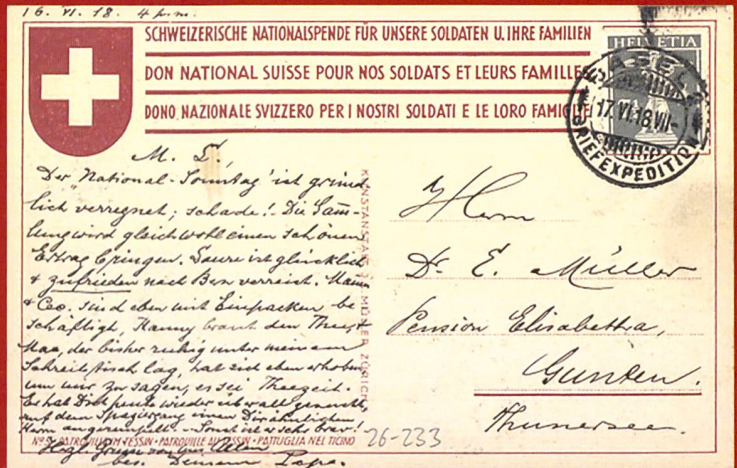 16. VI. 18. 4 p.m.
SCHWEIZERISCHE NATIONALSPENDE FÜR UNSERE SOLDATEN U. IHRE FAMILIEN
DON NATIONAL SUISSE POUR NOS SOLDATS ET LEURS FAMILLE
DONO NAZIONALE SVIZZERO PER I NOSTRI SOLDATI E LE LORO FAMIGLIE
HELVETIA
BASEL
17.VI.18.VII-
BRIEFEXPEDITION
M. L.
Der "National-Sonntag" ist gründ
lich verregnet; schade! Die Samm-
lung wird gleichwohl einen schönen
Ertrag bringen. Laure ist glücklich
& zufrieden nach Bern verreist. Mama
& Cec. sind eben mit Einpacken be
schäftigt, Nanny braut den Thee, &
Max, der bisher ruhig unter meinem
Schreibtisch lag, hat sich eben erhoben,
um mir zu sagen, es sei Theezeit.
Er hat Dich heute wieder überall gesucht,
auf dem Spaziergang einen
Herrn angerempelt. Sonst ist er sehr brav!
Herzl. Grüsse von uns Allen
bes. Deinem Papa.
KUNSTANSTALT J. MÜLLER ZÜRICH
Herrn
Dr. E. Müller
Pension Elisabetha,
Gunten.
Thunersee.
No 5 PATROUILLE IM TESSIN · PATROUILLE AU TESSIN · PATTUGLIA NEL TICINO
26-233